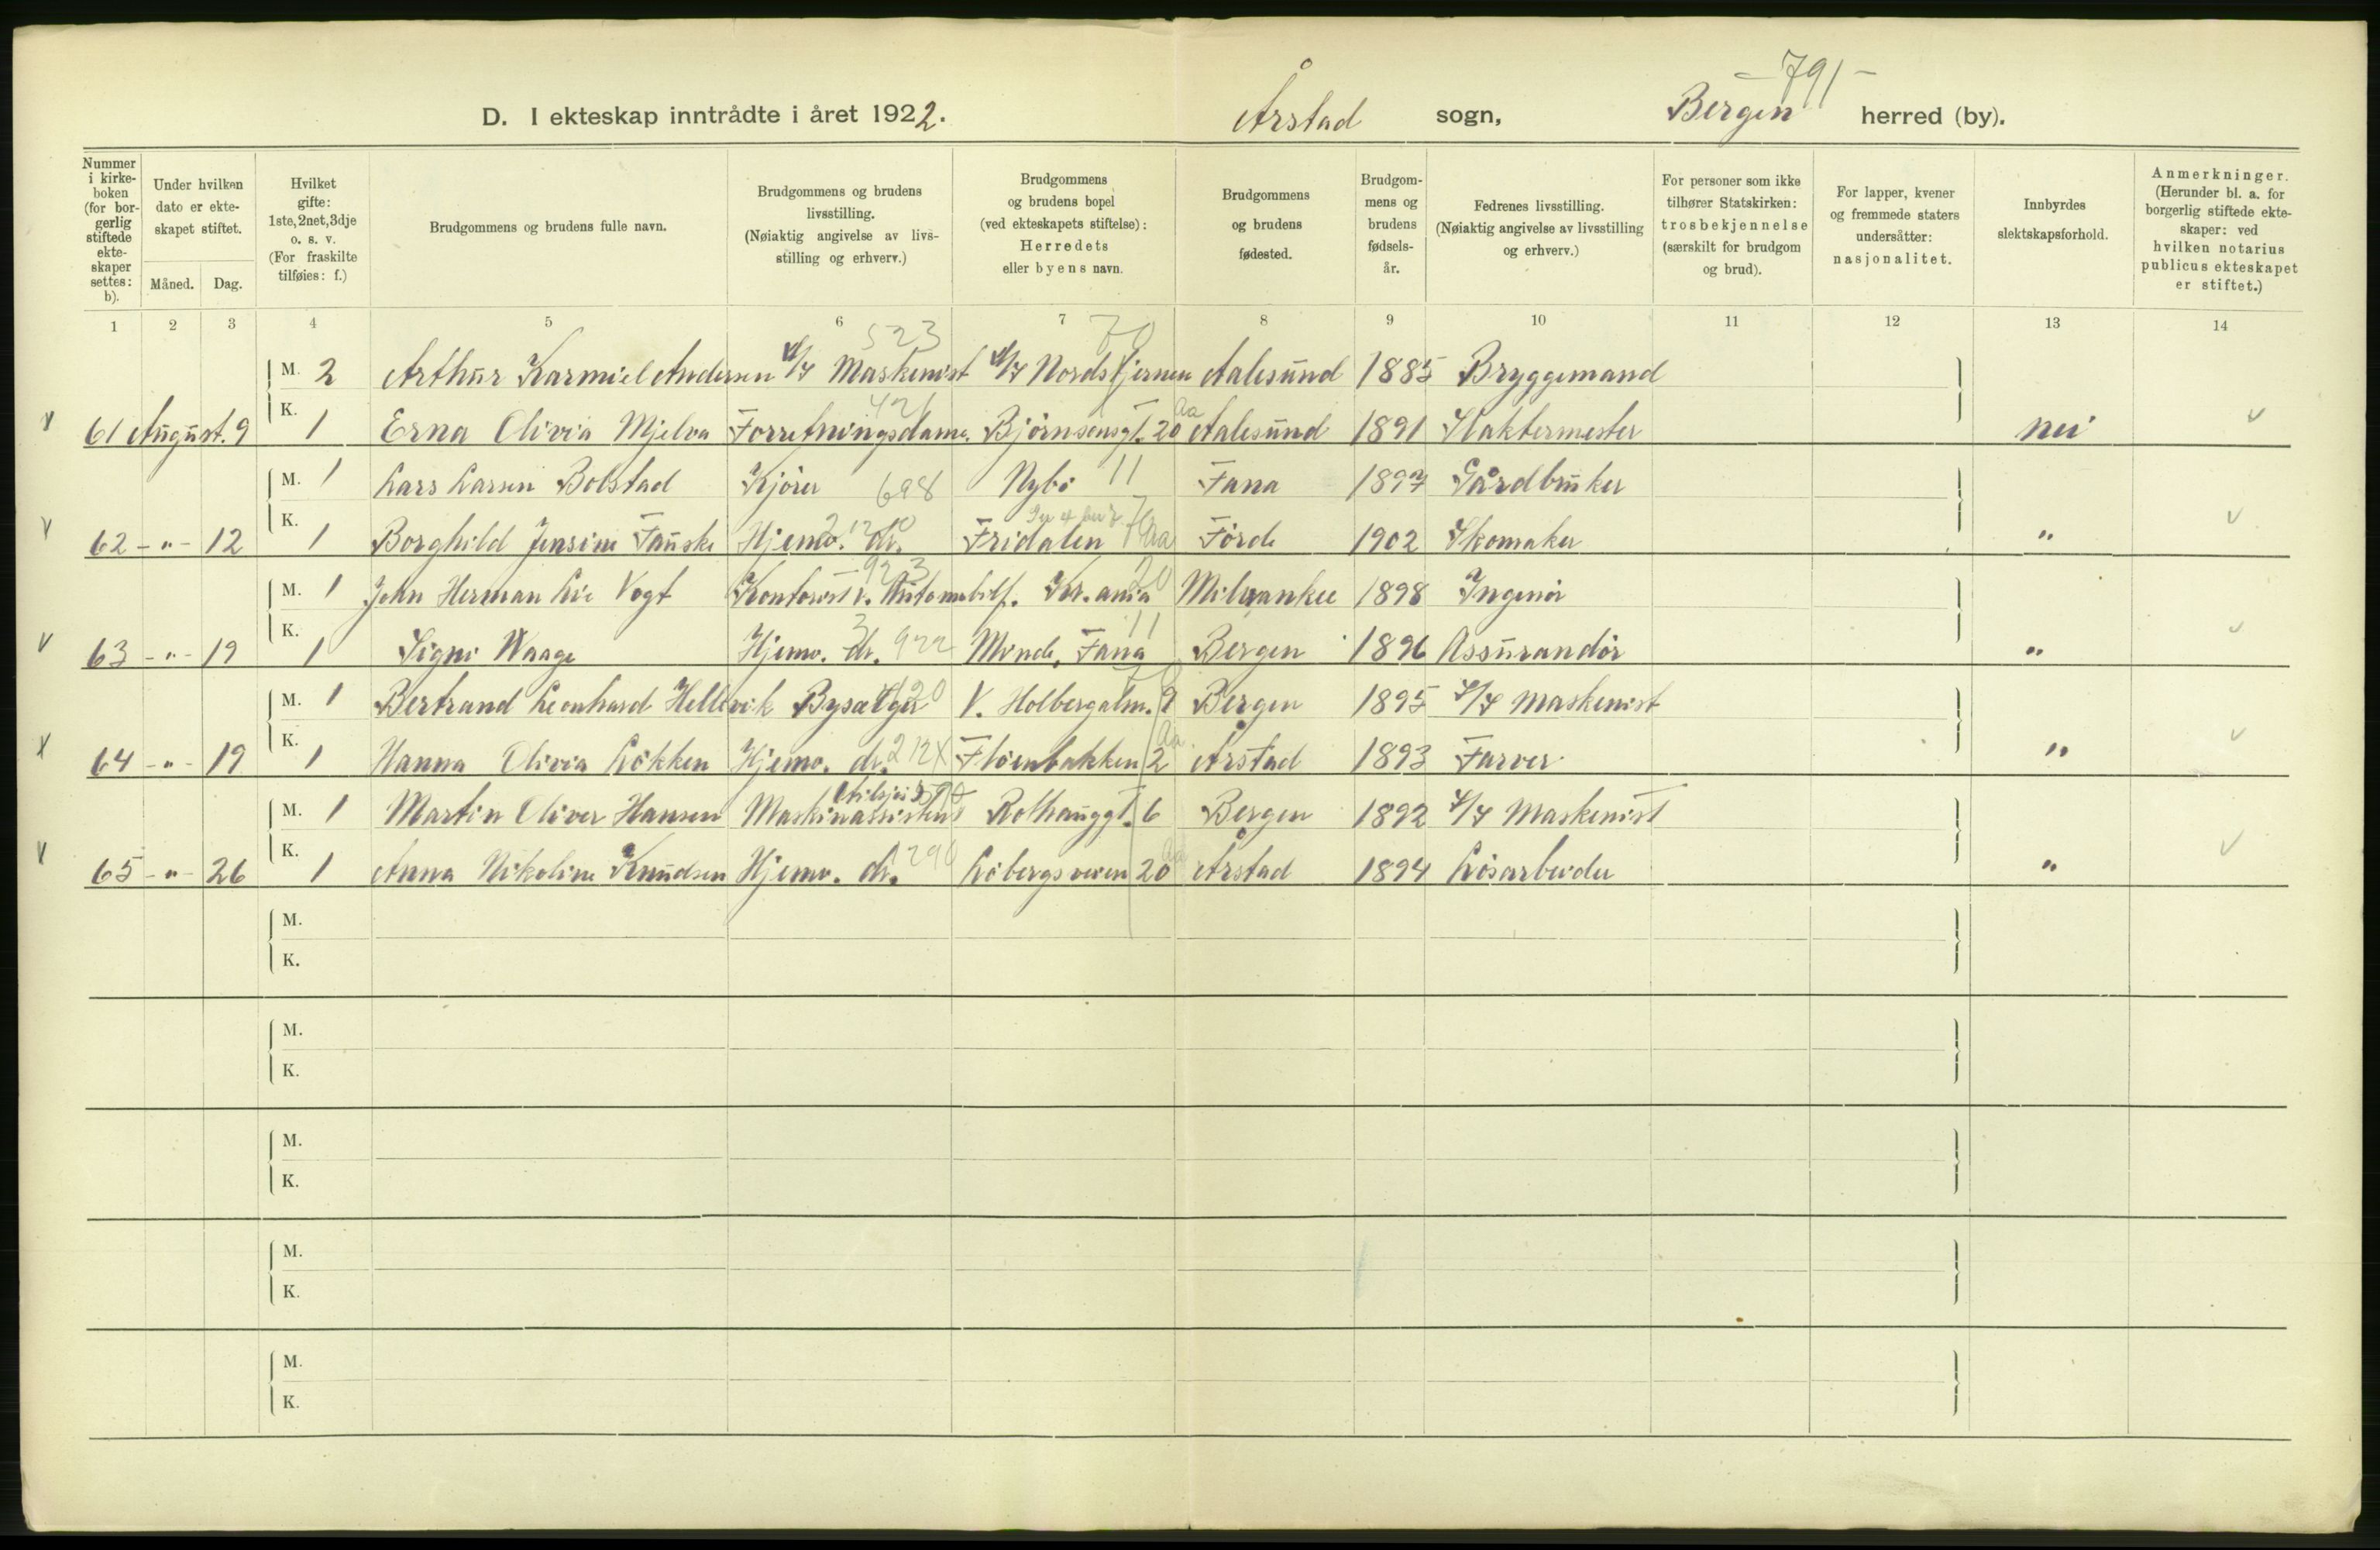 - 791 -
D. I ekteskap inntrådte i året 1922. Årstad sogn, Bergen herred (by).
Nummer i kirkeboken (for borgerlig stiftede ekteskaper settes: b).
Under hvilken dato er ekteskapet stiftet.
Måned. Dag.
Hvilket gifte: 1ste, 2net, 3dje o. s. v. (For fraskilte tilføies: f.)
Brudgommens og brudens fulle navn.
Brudgommens og brudens livsstilling. (Nøiaktig angivelse av livsstilling og erhverv.)
Brudgommens og brudens bopel (ved ekteskapets stiftelse): Herredets eller byens navn.
Brudgommens og brudens fødested.
Brudgommens og brudens fødselsår.
Fedrenes livsstilling. (Nøiaktig angivelse av livsstilling og erhverv.)
For personer som ikke tilhører Statskirken: trosbekjennelse (særskilt for brudgom og brud).
For lapper, kvener og fremmede staters undersåtter: nasjonalitet.
Innbyrdes slektskapsforhold.
Anmerkninger. (Herunder bl. a. for borgerlig stiftede ekteskaper: ved hvilken notarius publicus ekteskapet er stiftet.)
1 2 3 4 5 6 7 8 9 10 11 12 13 14
523 70
M. 2 Arthur Karmiel Andersen Maskinist Nordstjernen Aalesund 1885 Bryggemand
421 Aa
61 August. 9 K. 1 Erna Olivia Mjelva Forretningsdame. Bjørnsonsgt. 20 Aalesund 1891 Slaktermester nei
M. 1 Lars Larsen Bolstad Kjører 698 Nybø 11 Fana 1897 Gårdbruker
62 -"- 12 K. 1 Borghild Jensine Fauske Hjemv. dr. Fridalen Aa Førde 1902 Skomaker "
923 20
M. 1 John Herman Lie Vogt Kontorist v. Automobilf. Kr.ania Milwaukee 1898 Ingeniør
63 -"- 19 K. 1 Signe Waage Hjemv. dr. 922 Minde, Fana 11 Bergen 1896 Assurandør "
M. 1 Bertrand Leonhard Hellevik Bysælger V. Holbergalm. 9 Bergen 1895 Maskinist
64 -"- 19 K. 1 Hanna Olivia Løkken Hjemv. dr. Fløenbakken 2 Aa Årstad 1893 Farver "
M. 1 Martin Oliver Hansen Maskinassistent Rothauggt. 6 Bergen 1892 Maskinist
65 -"- 26 K. 1 Anna Nikoline Knudsen Hjemv. dr. 1290 Løbergsveien 20 Aa Årstad 1894 Løsarbeider "
M.
K.
M.
K.
M.
K.
M.
K.
M.
K.